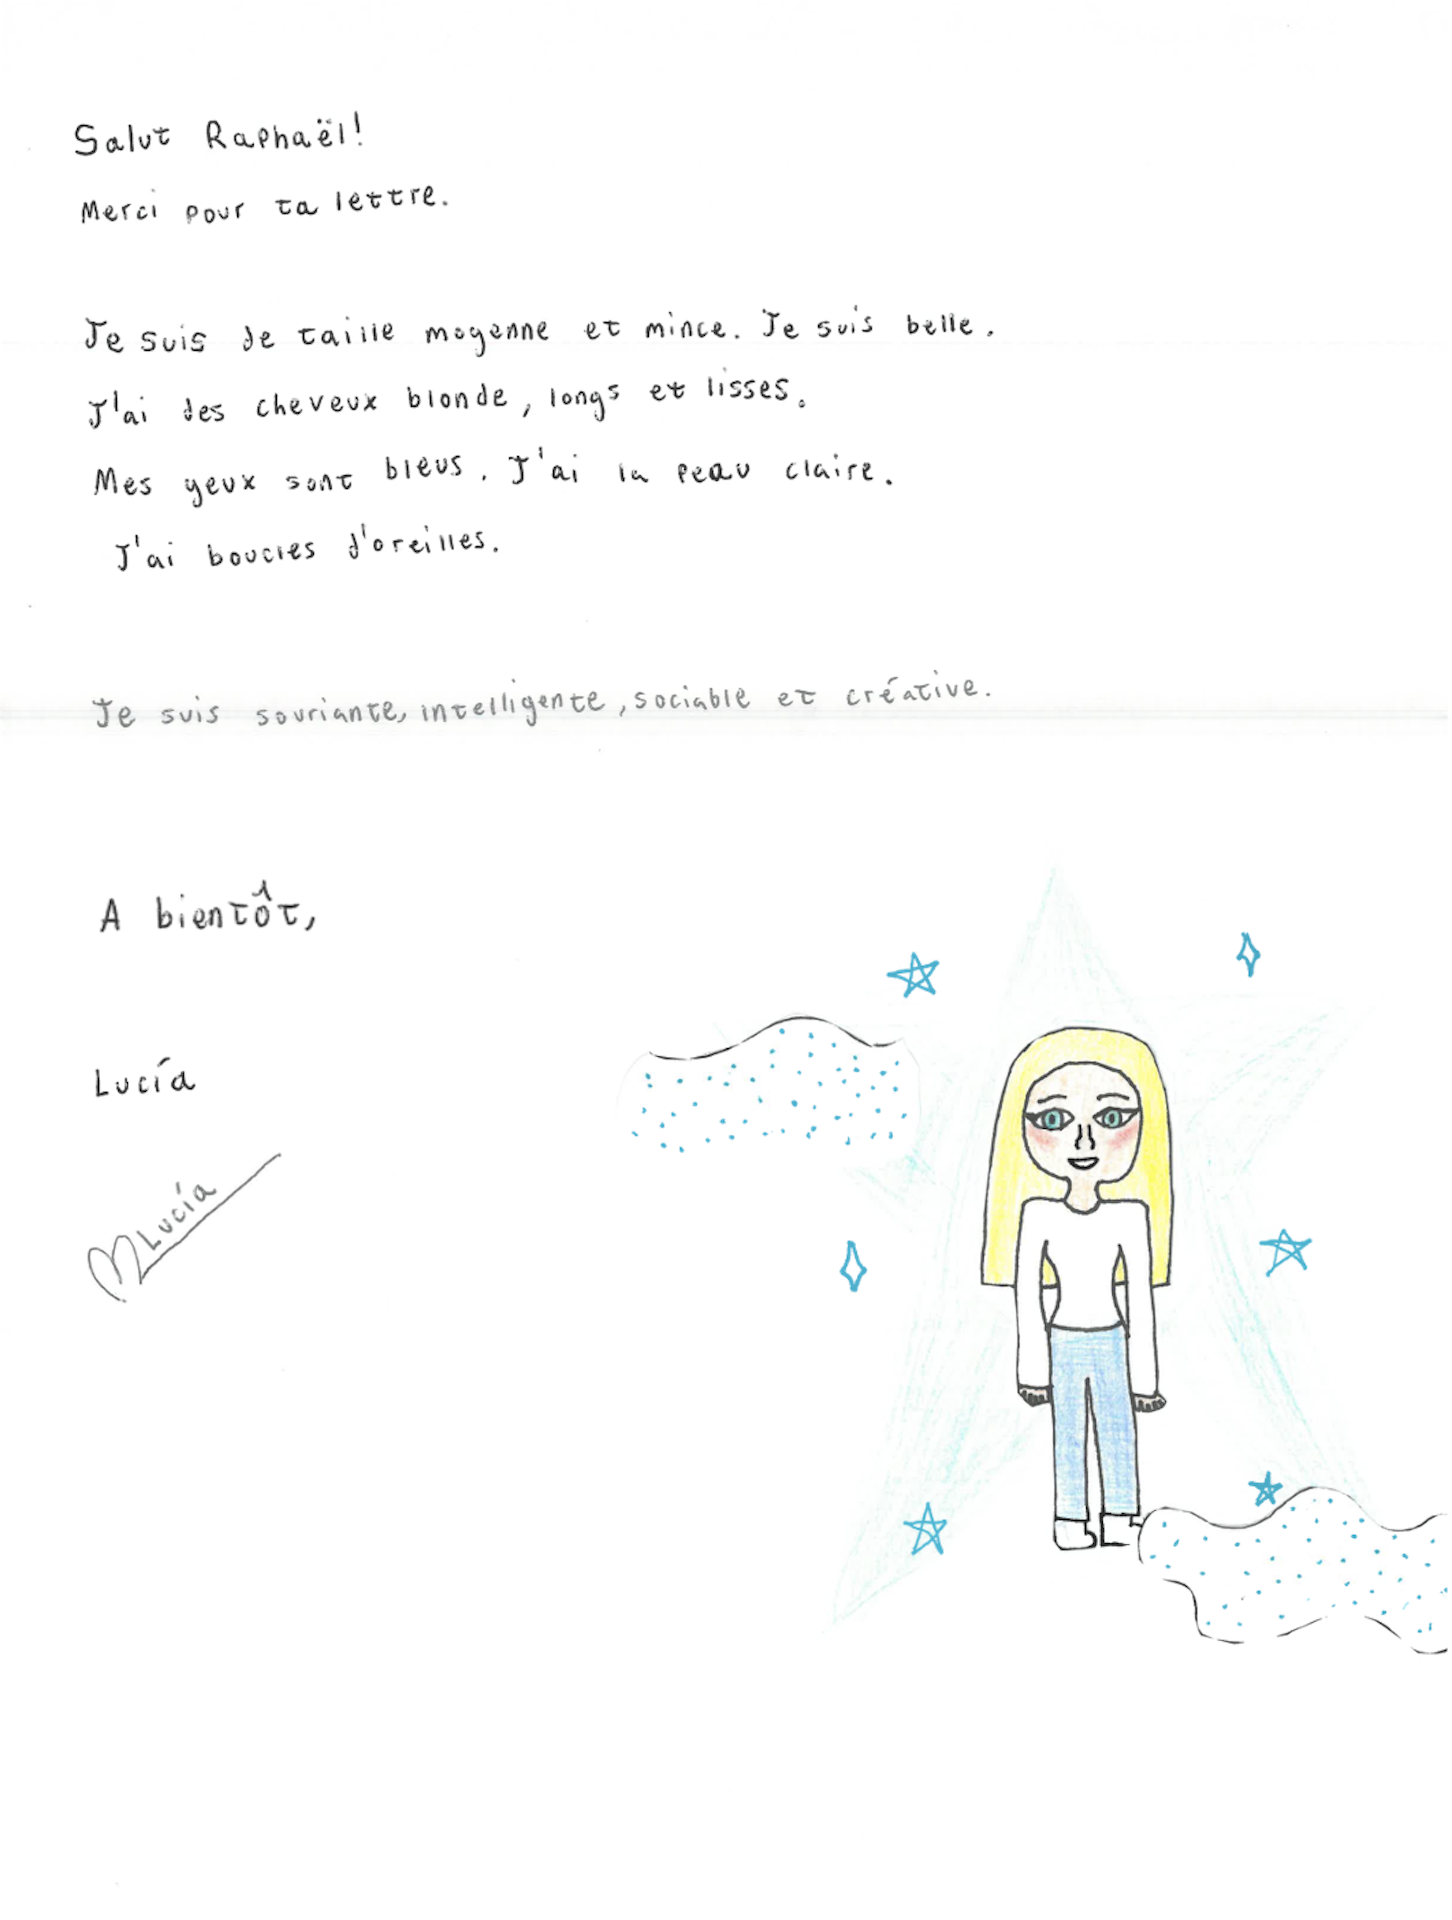 Salut Raphaël!
Merci pour ta lettre.
Je suis de taille moyenne et mince. Je suis belle.
J'ai des cheveux blonde, longs et lisses.
Mes yeux sont bleus. J'ai la peau claire.
J'ai boucles d'oreilles.
Je suis souriante, intelligente, sociable et créative.
A bientôt,
Lucía
Lucía